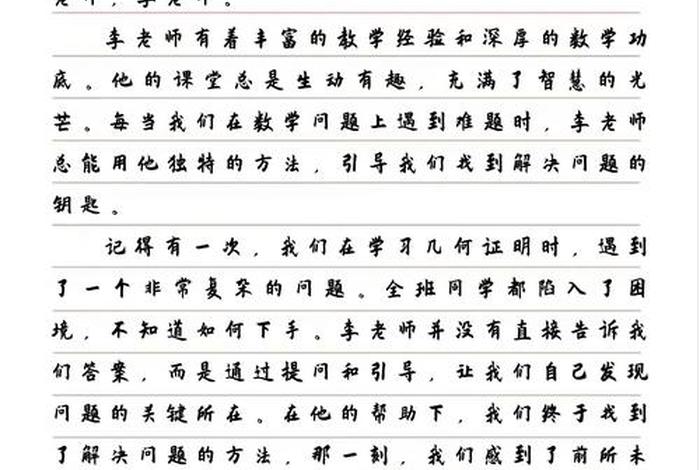 李老师有着丰富的教学经验和深厚的数学功
底。他的课堂总是生动有趣，充满了智慧的光
芒。每当我们在数学问题上遇到难题时，李老师
总能用他独特的方法，引导我们找到解决问题的
钥匙。
记得有一次，我们在学习几何证明时，遇到
了一个非常复杂的问题。全班同学都陷入了困
境，不知道如何下手。李老师并没有直接告诉我
们答案，而是通过提问和引导，让我们自己发现
问题的关键所在。在他的帮助下，我们终于找到
了解决问题的方法，那一刻，我们感到了前所未